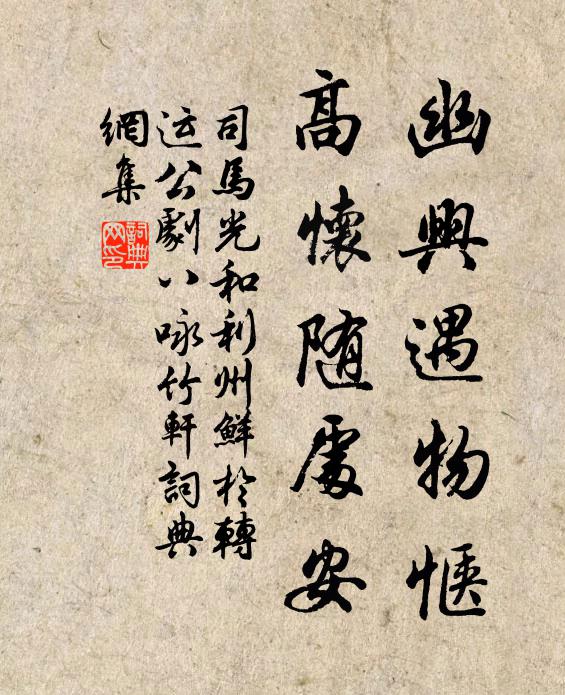 幽興遇物愜
高懷随處安
司馬光和利州鮮於轉
运公劇八咏竹軒詞典
網集
詞典网印